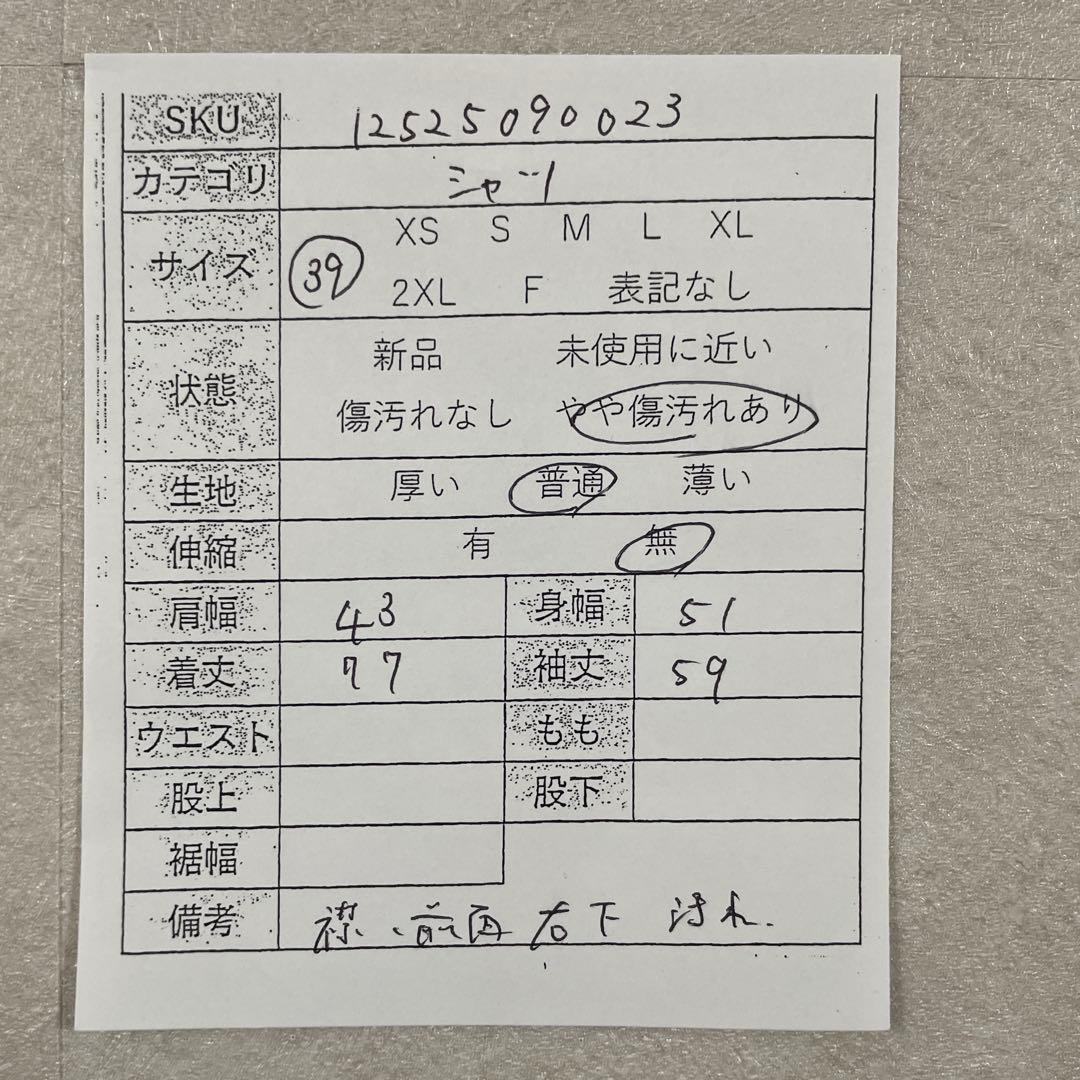 SKU 12525090023
カテゴリ シャツ
サイズ XS S M L XL
39 2XL F 表記なし
状態 新品 未使用に近い
傷汚れなし やや傷汚れあり
生地 厚い 普通 薄い
伸縮 有 無
肩幅 43 身幅 51
着丈 77 袖丈 59
ウエスト もも
股上 股下
裾幅
備考 襟、前面右下 汚れ.